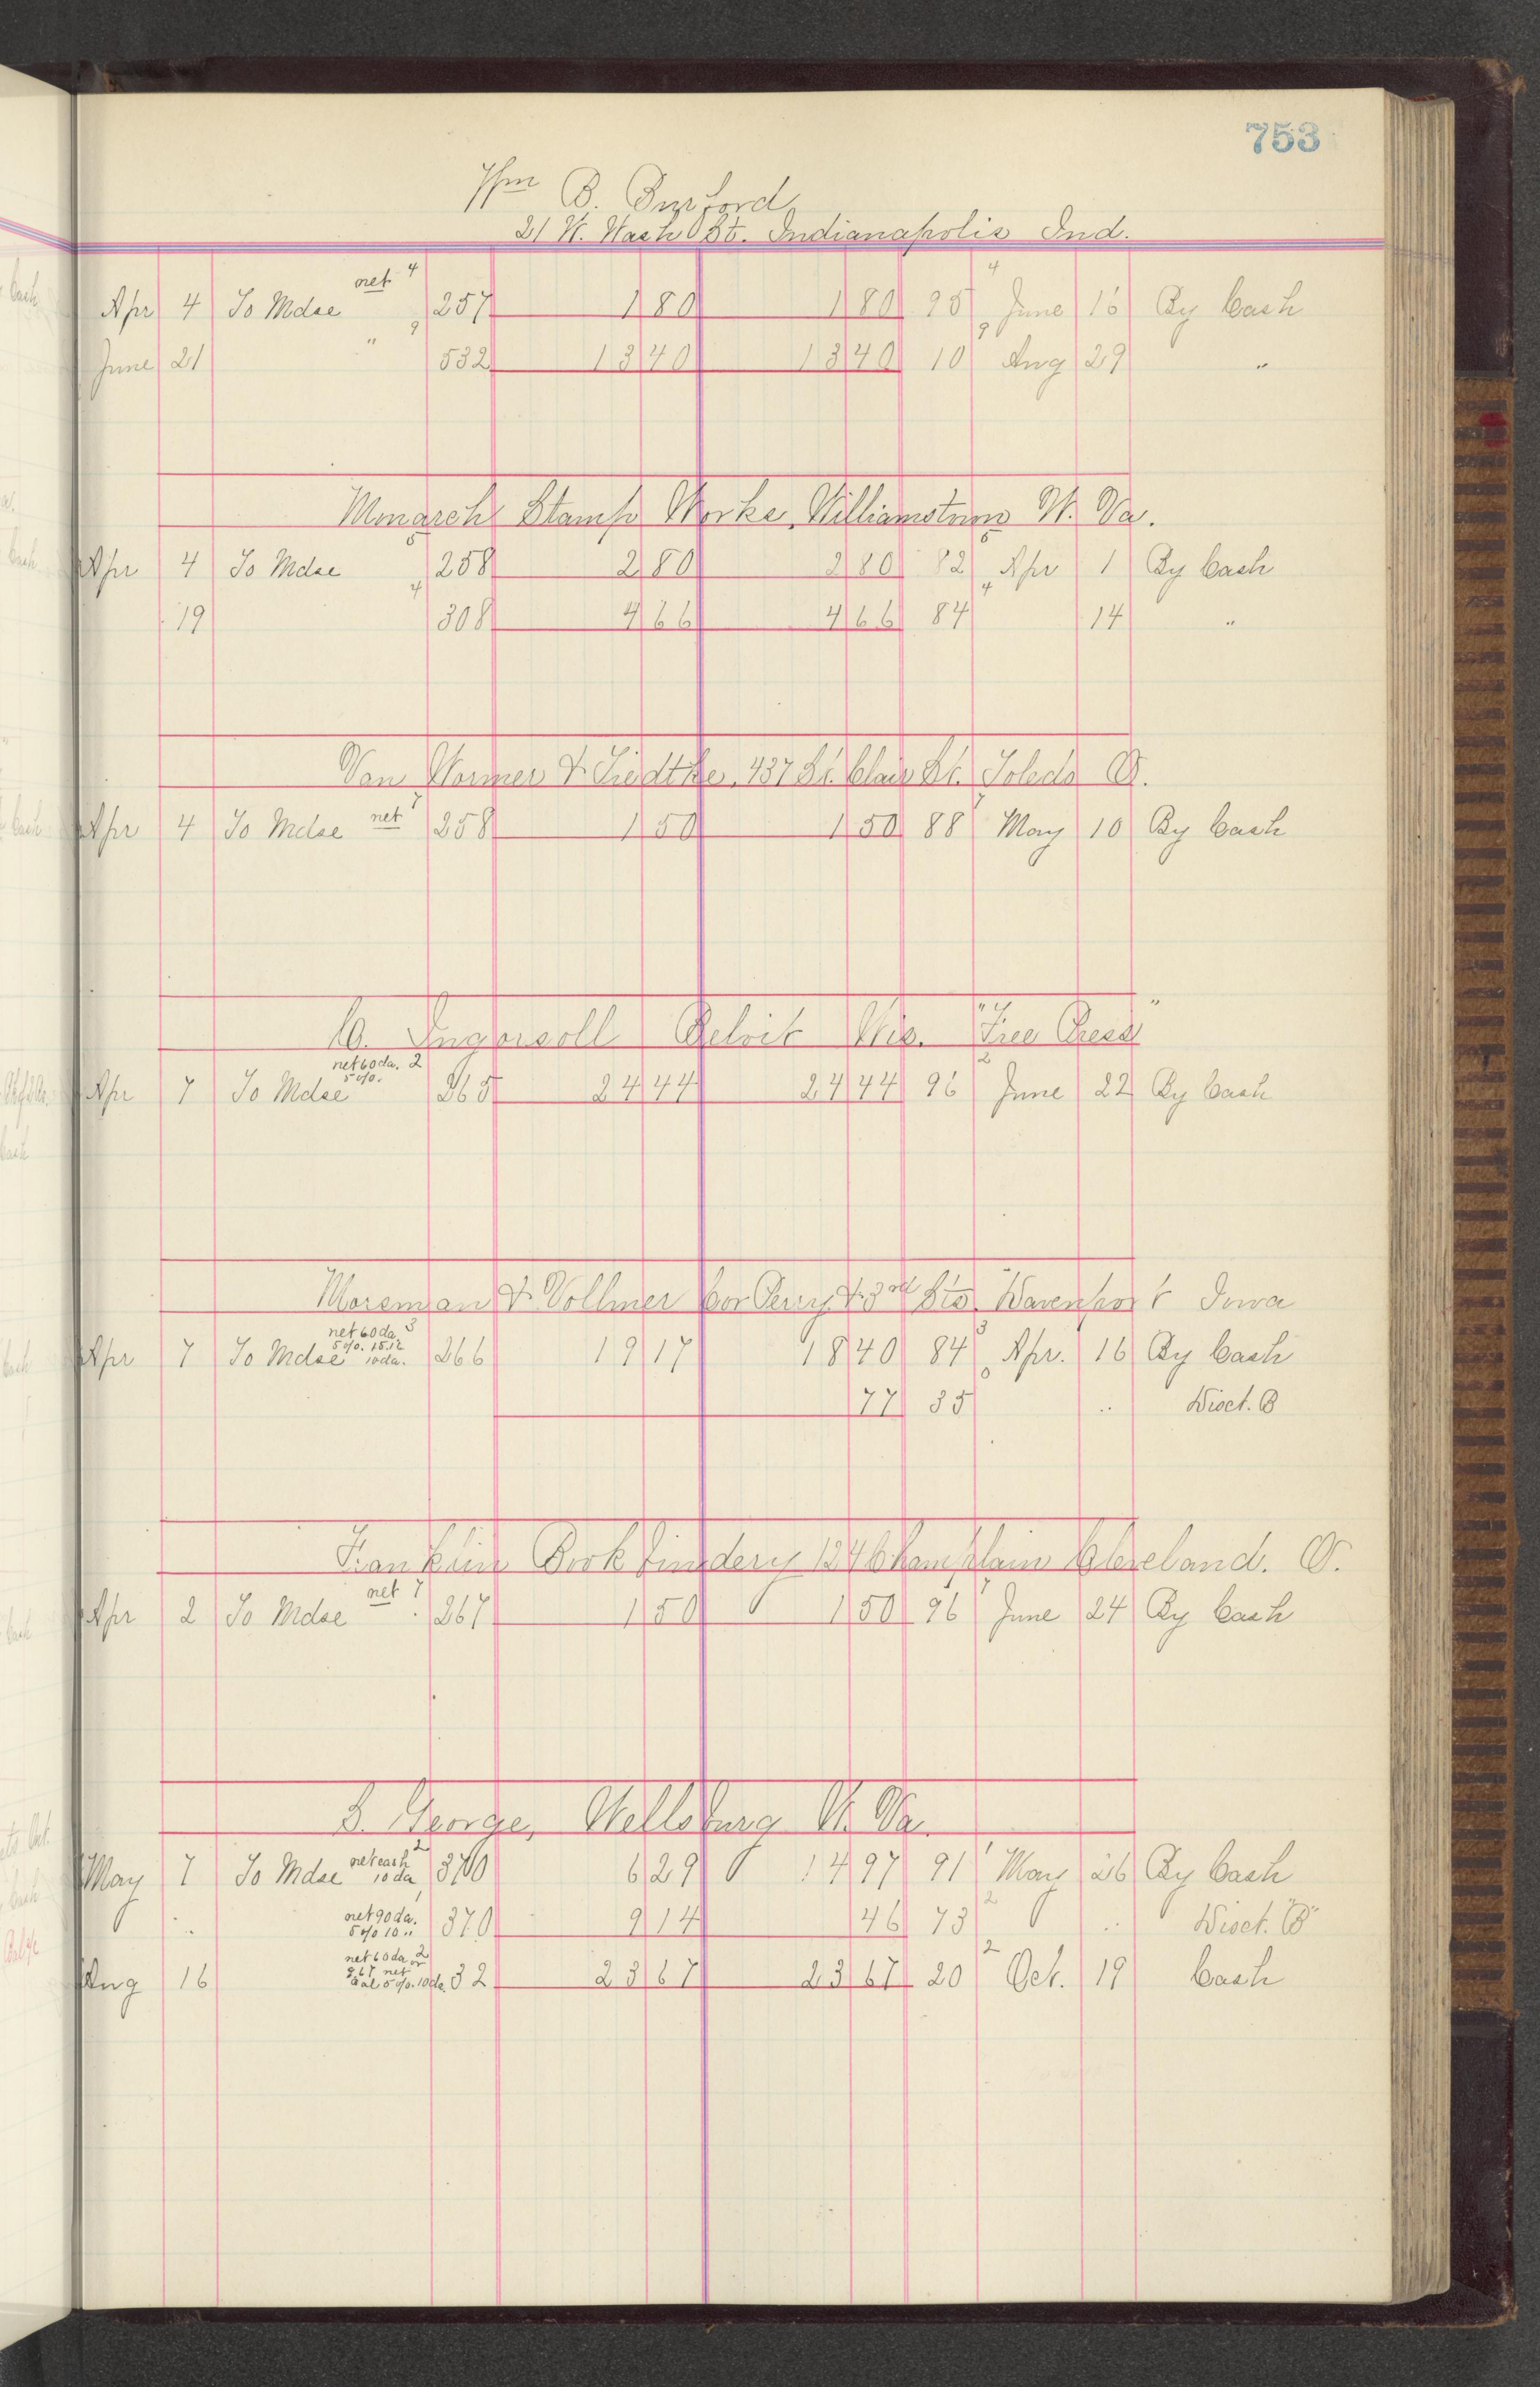 753
Wm B. Burford
21 W. Wash St. Indianapolis Ind.
Apr 4 To Mdse net 4 257 1 80 1 80 95 4 June 15 By Cash
June 21 " 9 532 13 40 13 40 10 9 Aug 29 "
Monarch Stamp Works, Williamstown W. Va.
Apr 4 To Mdse 258 2 80 2 80 82 Apr 1 By Cash
19 4 308 4 66 4 66 84 4 14 "
Van Wormer & Tiedtke, 437 St. Clair St. Toledo O.
Apr 4 To Mdse net 7 258 1 50 1 50 88 7 May 10 By Cash
C. Ingersoll Beloit Wis. "Free Press"
net 60 da. 2
5% 
Apr 7 To Mdse 265 24 44 24 44 96 2 June 22 By Cash
Moreman & Vollmer Cor Perry & 3rd Sts. Davenport Iowa
net 60 da. 3
Apr 7 To Mdse 10 da. 266 19 17 18 40 84 3 Apr. 16 By Cash
77 85 .. Disct. B
Franklin Book bindery 124 Champlain Cleveland. O.
Apr 2 To Mdse net 7 267 1 50 1 50 96 7 June 24 By Cash
S. George, Wellsburg W. Va.
May 7 To Mdse net cash 10 da 2 370 6 29 14 97 91 1 May 26 By Cash
.. net 90 da. 5% 10 .. 1 370 9 14 46 73 2 .. Disct. "B"
net 60 da or 2
9.67 net
Aug 16 bal 5%. 10 da. 32 23 67 23 67 20 2 Oct. 19 Cash